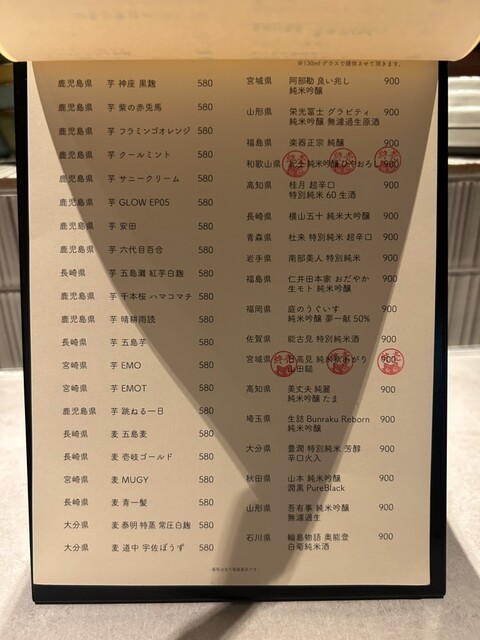 ※130ml グラスで提供させて頂きます。
鹿児島県 芋 神座 黒麹 580
鹿児島県 芋 紫の赤兎馬 580
鹿児島県 芋 フラミンゴオレンジ 580
鹿児島県 芋 クールミント 580
鹿児島県 芋 サニークリーム 580
鹿児島県 芋 GLOW EP05 580
鹿児島県 芋 安田 580
鹿児島県 芋 六代目百合 580
長崎県 芋 五島灘 紅芋白麹 580
鹿児島県 芋 千本桜 ハマコマチ 580
鹿児島県 芋 晴耕雨読 580
長崎県 芋 五島芋 580
宮崎県 芋 EMO 580
宮崎県 芋 EMOT 580
鹿児島県 芋 跳ねる一日 580
長崎県 麦 五島麦 580
長崎県 麦 壱岐ゴールド 580
宮崎県 麦 MUGY 580
長崎県 麦 青一髪 580
大分県 麦 泰明 特蒸 常圧白麹 580
大分県 麦 道中 宇佐ぼうず 580
宮城県 阿部勘 良い兆し 900
純米吟醸
山形県 栄光冨士 グラビティ 900
純米吟醸 無濾過生原酒
福島県 楽器正宗 純醸 900
和歌山県 紀土 純米吟醸 ひやおろし 900
高知県 桂月 超辛口 900
特別純米 60 生酒
長崎県 横山五十 純米大吟醸 900
青森県 杜来 特別純米 超辛口 900
岩手県 南部美人 特別純米 900
福島県 仁井田本家 おだやか 900
生モト 純米吟醸
福岡県 庭のうぐいす 900
純米吟醸 夢一献 50%
佐賀県 能古見 特別純米酒 900
宮城県 日高見 純米秋あがり 900
山田錦
高知県 美丈夫 純麗 900
純米吟醸 たま
埼玉県 生詰 Bunraku Reborn 900
純米吟醸
大分県 豊潤 特別純米 芳醇 900
辛口火入
秋田県 山本 純米吟醸 900
潤黒 PureBlack
山形県 吾有事 純米吟醸 900
無濾過生
石川県 輪島物語 奥能登 900
白菊純米酒